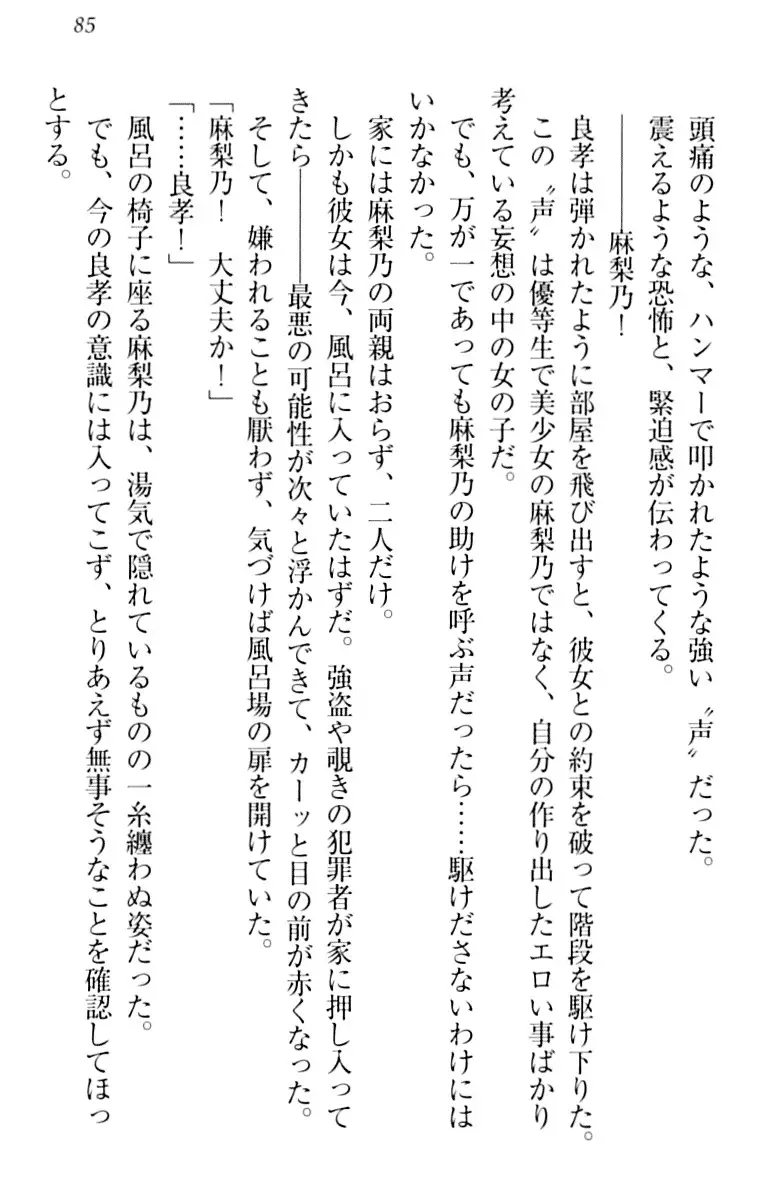 85
頭痛のような、ハンマーで叩かれたような強い〝声〟だった。
震えるような恐怖と、緊迫感が伝わってくる。
――麻梨乃！
良孝は弾かれたように部屋を飛び出すと、彼女との約束を破って階段を駆け下りた。
この〝声〟は優等生で美少女の麻梨乃ではなく、自分の作り出したエロい事ばかり
考えている妄想の中の女の子だ。
でも、万が一であっても麻梨乃の助けを呼ぶ声だったら……駆けださないわけには
いかなかった。
家には麻梨乃の両親はおらず、二人だけ。
しかも彼女は今、風呂に入っていたはずだ。強盗や覗きの犯罪者が家に押し入って
きたら――最悪の可能性が次々と浮かんできて、カーッと目の前が赤くなった。
そして、嫌われることも厭わず、気づけば風呂場の扉を開けていた。
「麻梨乃！　大丈夫か！」
「……良孝！」
風呂の椅子に座る麻梨乃は、湯気で隠れているものの一糸纏わぬ姿だった。
でも、今の良孝の意識には入ってこず、とりあえず無事そうなことを確認してほっ
とする。